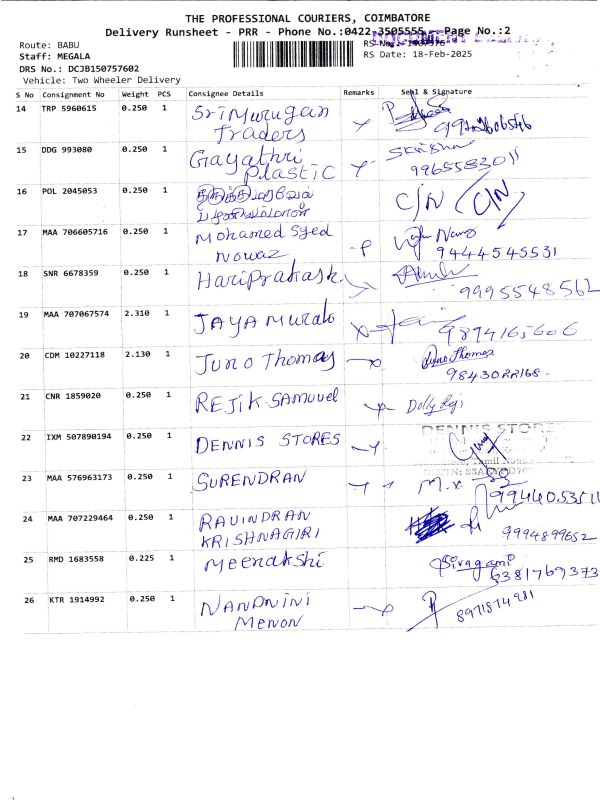 THE PROFESSIONAL COURIERS, COIMBATORE
Delivery Runsheet - PRR - Phone No.:0422-3505555 Page No.:2
Route: BABU
RS No.:
Staff: MEGALA
RS Date: 18-Feb-2025
DRS No.: DCJB150757602
Vehicle: Two Wheeler Delivery
S No Consignment No Weight PCS Consignee Details Remarks Seal & Signature
14 TRP 5960615 0.250 1 Sri Murugan
Traders
15 DDG 993080 0.250 1 Gayathri
Plastic 9965583011
16 POL 2045053 0.250 1 C/N (C/N)
17 MAA 706605716 0.250 1 Mohamed Syed
Nowaz 9444545531
18 SNR 6678359 0.250 1 Hariprakash
9995548562
19 MAA 707067574 2.310 1 JAYA Murali
9894165606
20 CDM 10227118 2.130 1 Juno Thomas Juno Thomas
9843022168.
21 CNR 1859020 0.250 1 REJIK SAMUVEL Dolly Reji
22 IXM 507890194 0.250 1 DENNIS STORES DENNIS STORES
23 MAA 576963173 0.250 1 SURENDRAN
9944053511
24 MAA 707229464 0.250 1 RAVINDRAN
KRISHNAGIRI 9994899652
25 RMD 1683558 0.225 1 Meenakshi Sivagami
6381769373
26 KTR 1914992 0.250 1 NANDNINI
MENON 8971874981